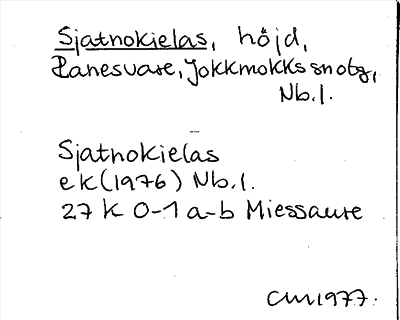 Sjatnokielas, höjd,
Panesvare, Jokkmokks snotg,
Nb.l.
Sjatnokielas
ek (1976) Nb.l.
27 K 0-1 a-b Miessaure
CM 1977.